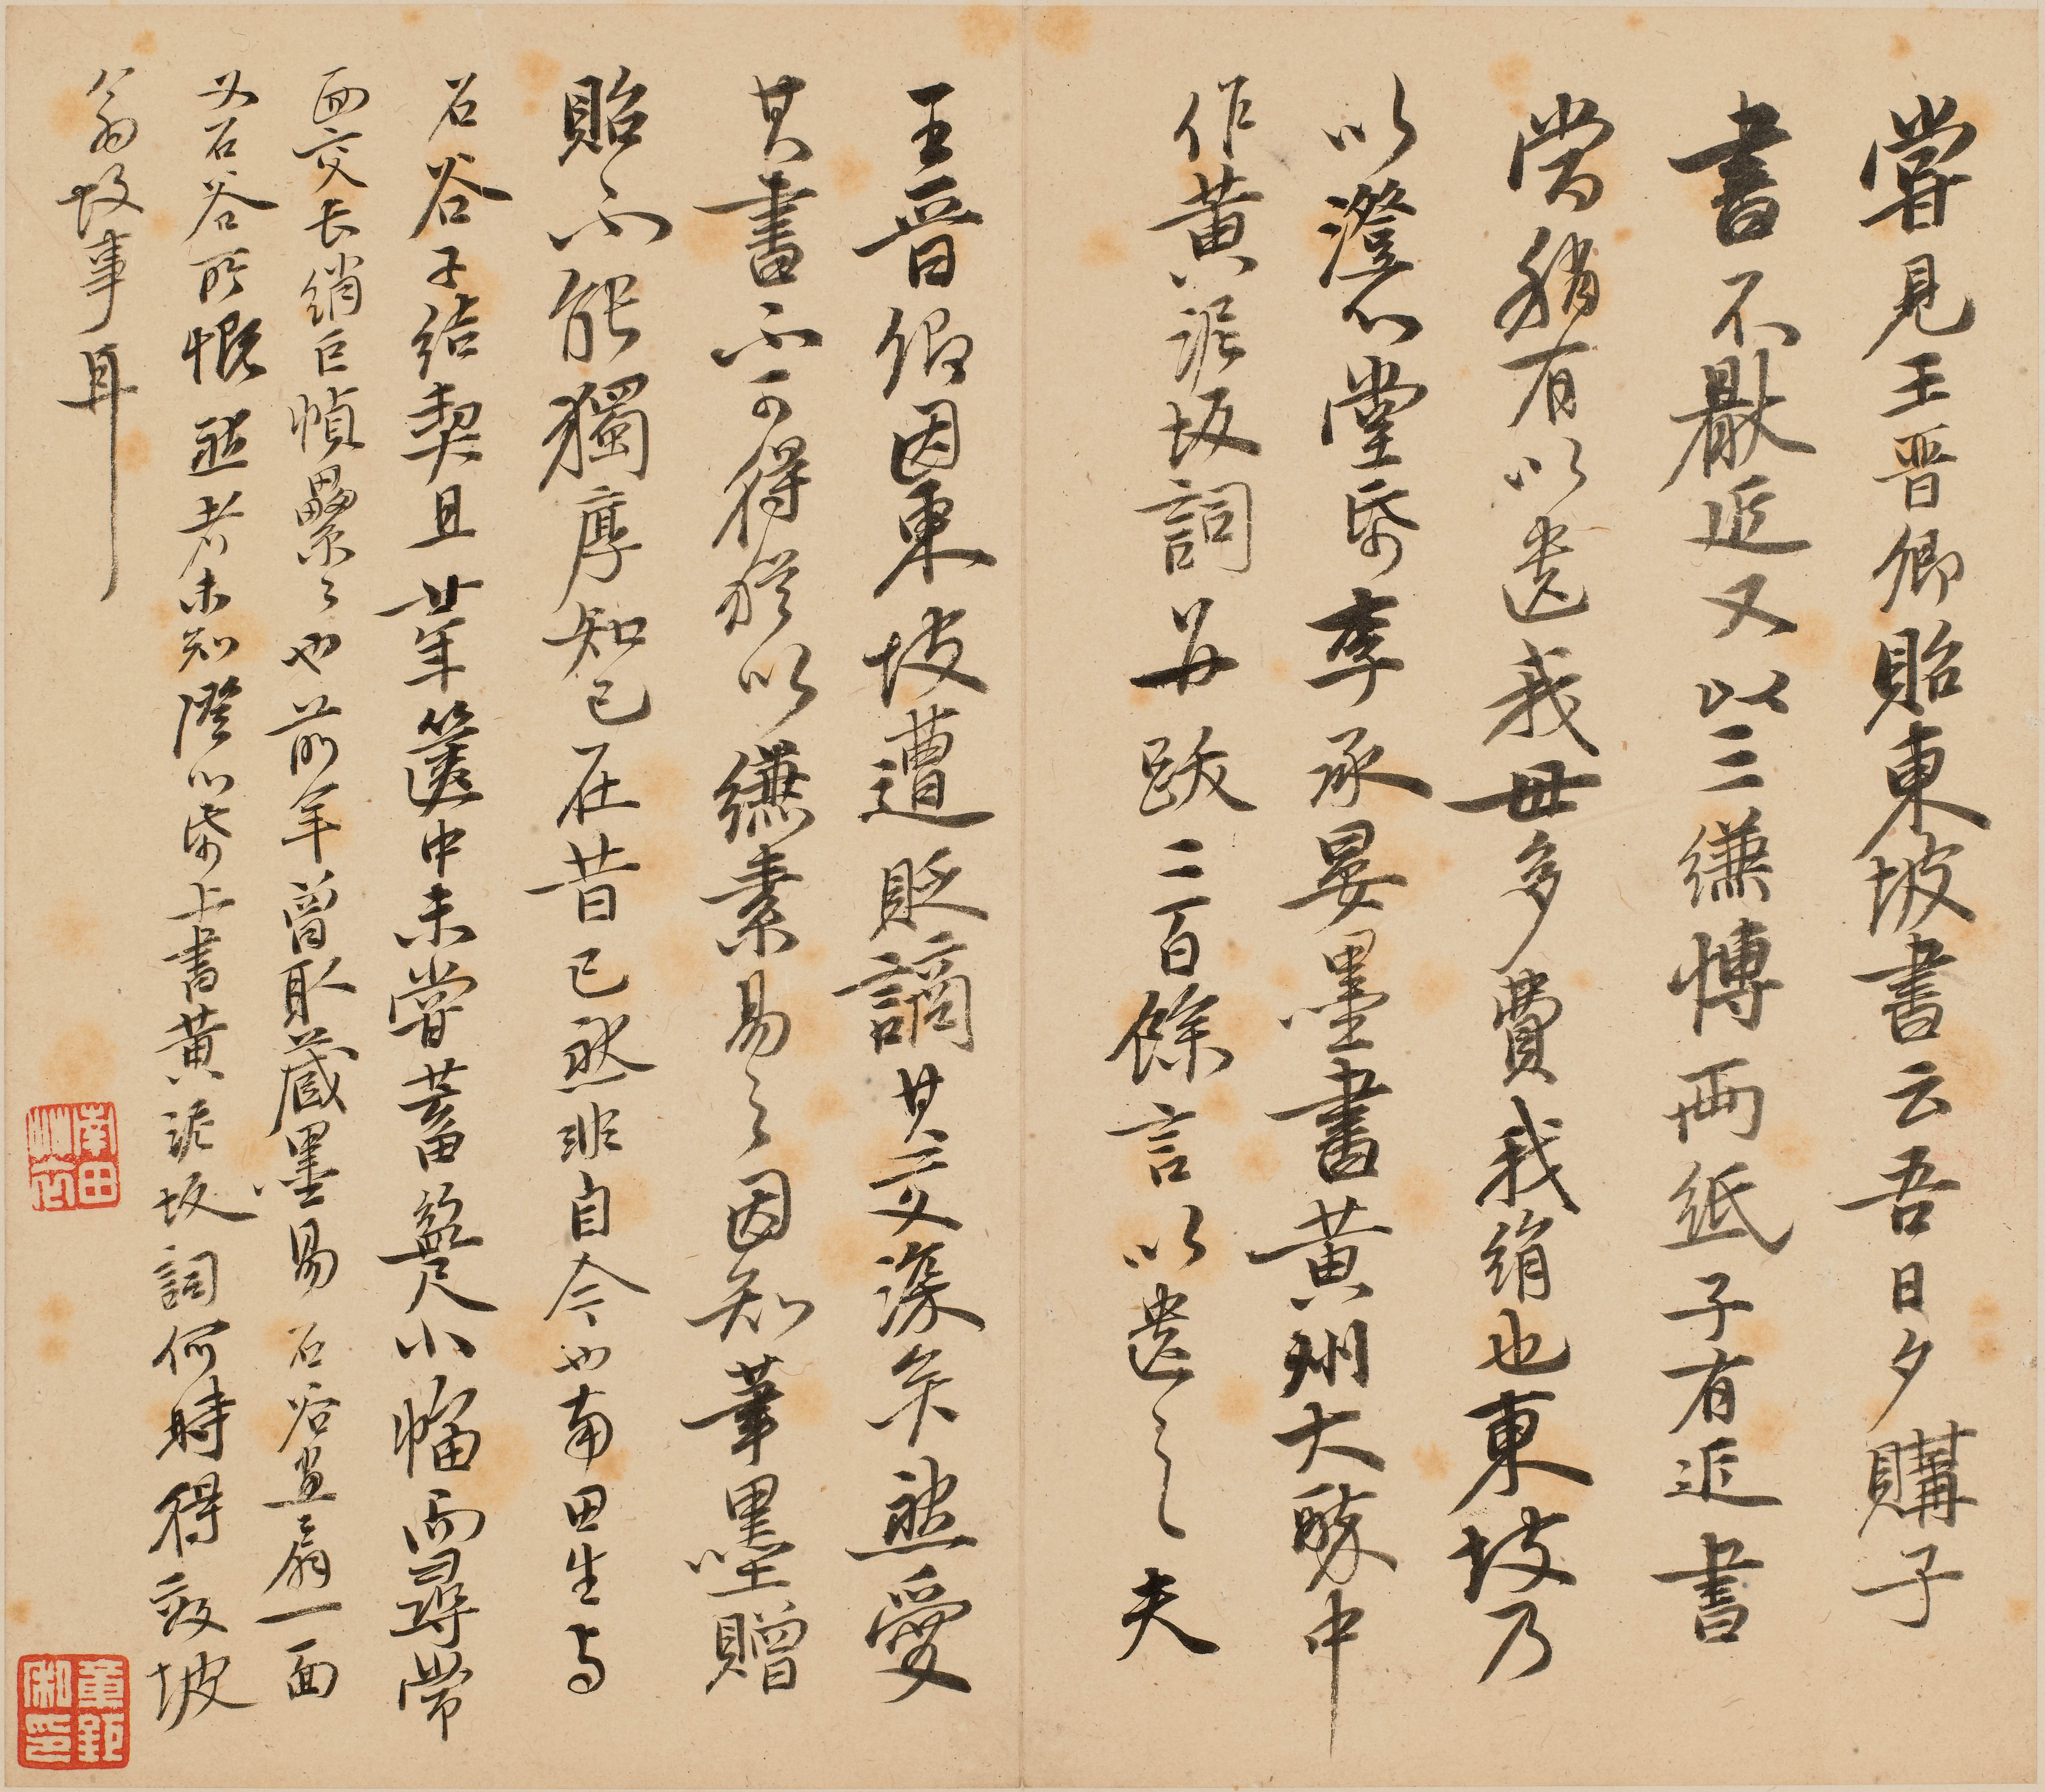 嘗見王晉卿貽東坡書云吾日夕購子
書不厭近又以三縑博兩紙子有近書
當稍有以遺我毋多費我絹也東坡乃
以澄心堂帋李承晏墨書黃州大醉中
作黃泥坂詞并跋二百餘言以遺之夫
王晉卿因東坡遭貶謫其交深矣然愛
其書不可得猶以縑素易之因知筆墨贈
貽不能獨厚知己在昔已然非自今也南田生与
石谷子結契且廿年篋中未嘗蓄盈尺小幅而尋常
面交長綃巨幀纍纍也前年曾取藏墨易石谷畫扇一面
又石谷所慨然者未知澄心帋上書黃泥坂詞何時得效坡
翁故事耳
南田